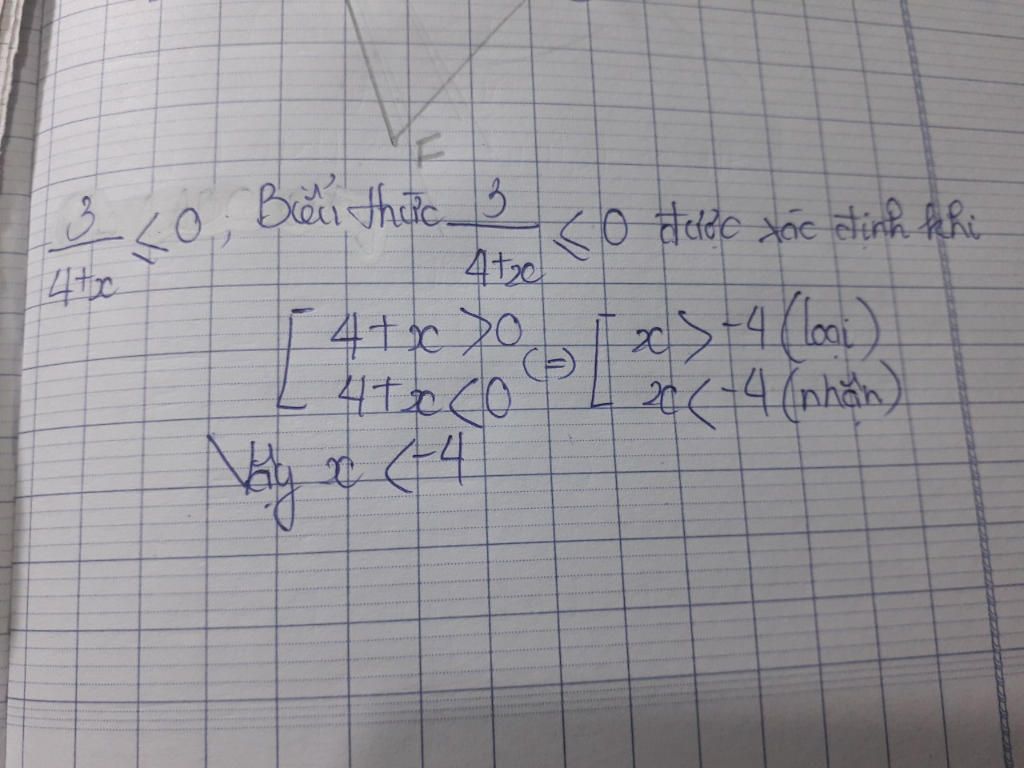 F
3/(4+x) ≤ 0; Biểu thức 3/(4+x) ≤ 0 được xác định khi
[ 4+x > 0 (=) [ x > -4 (loại)
[ 4+x < 0 [ x < -4 (nhận)
Vậy x < -4